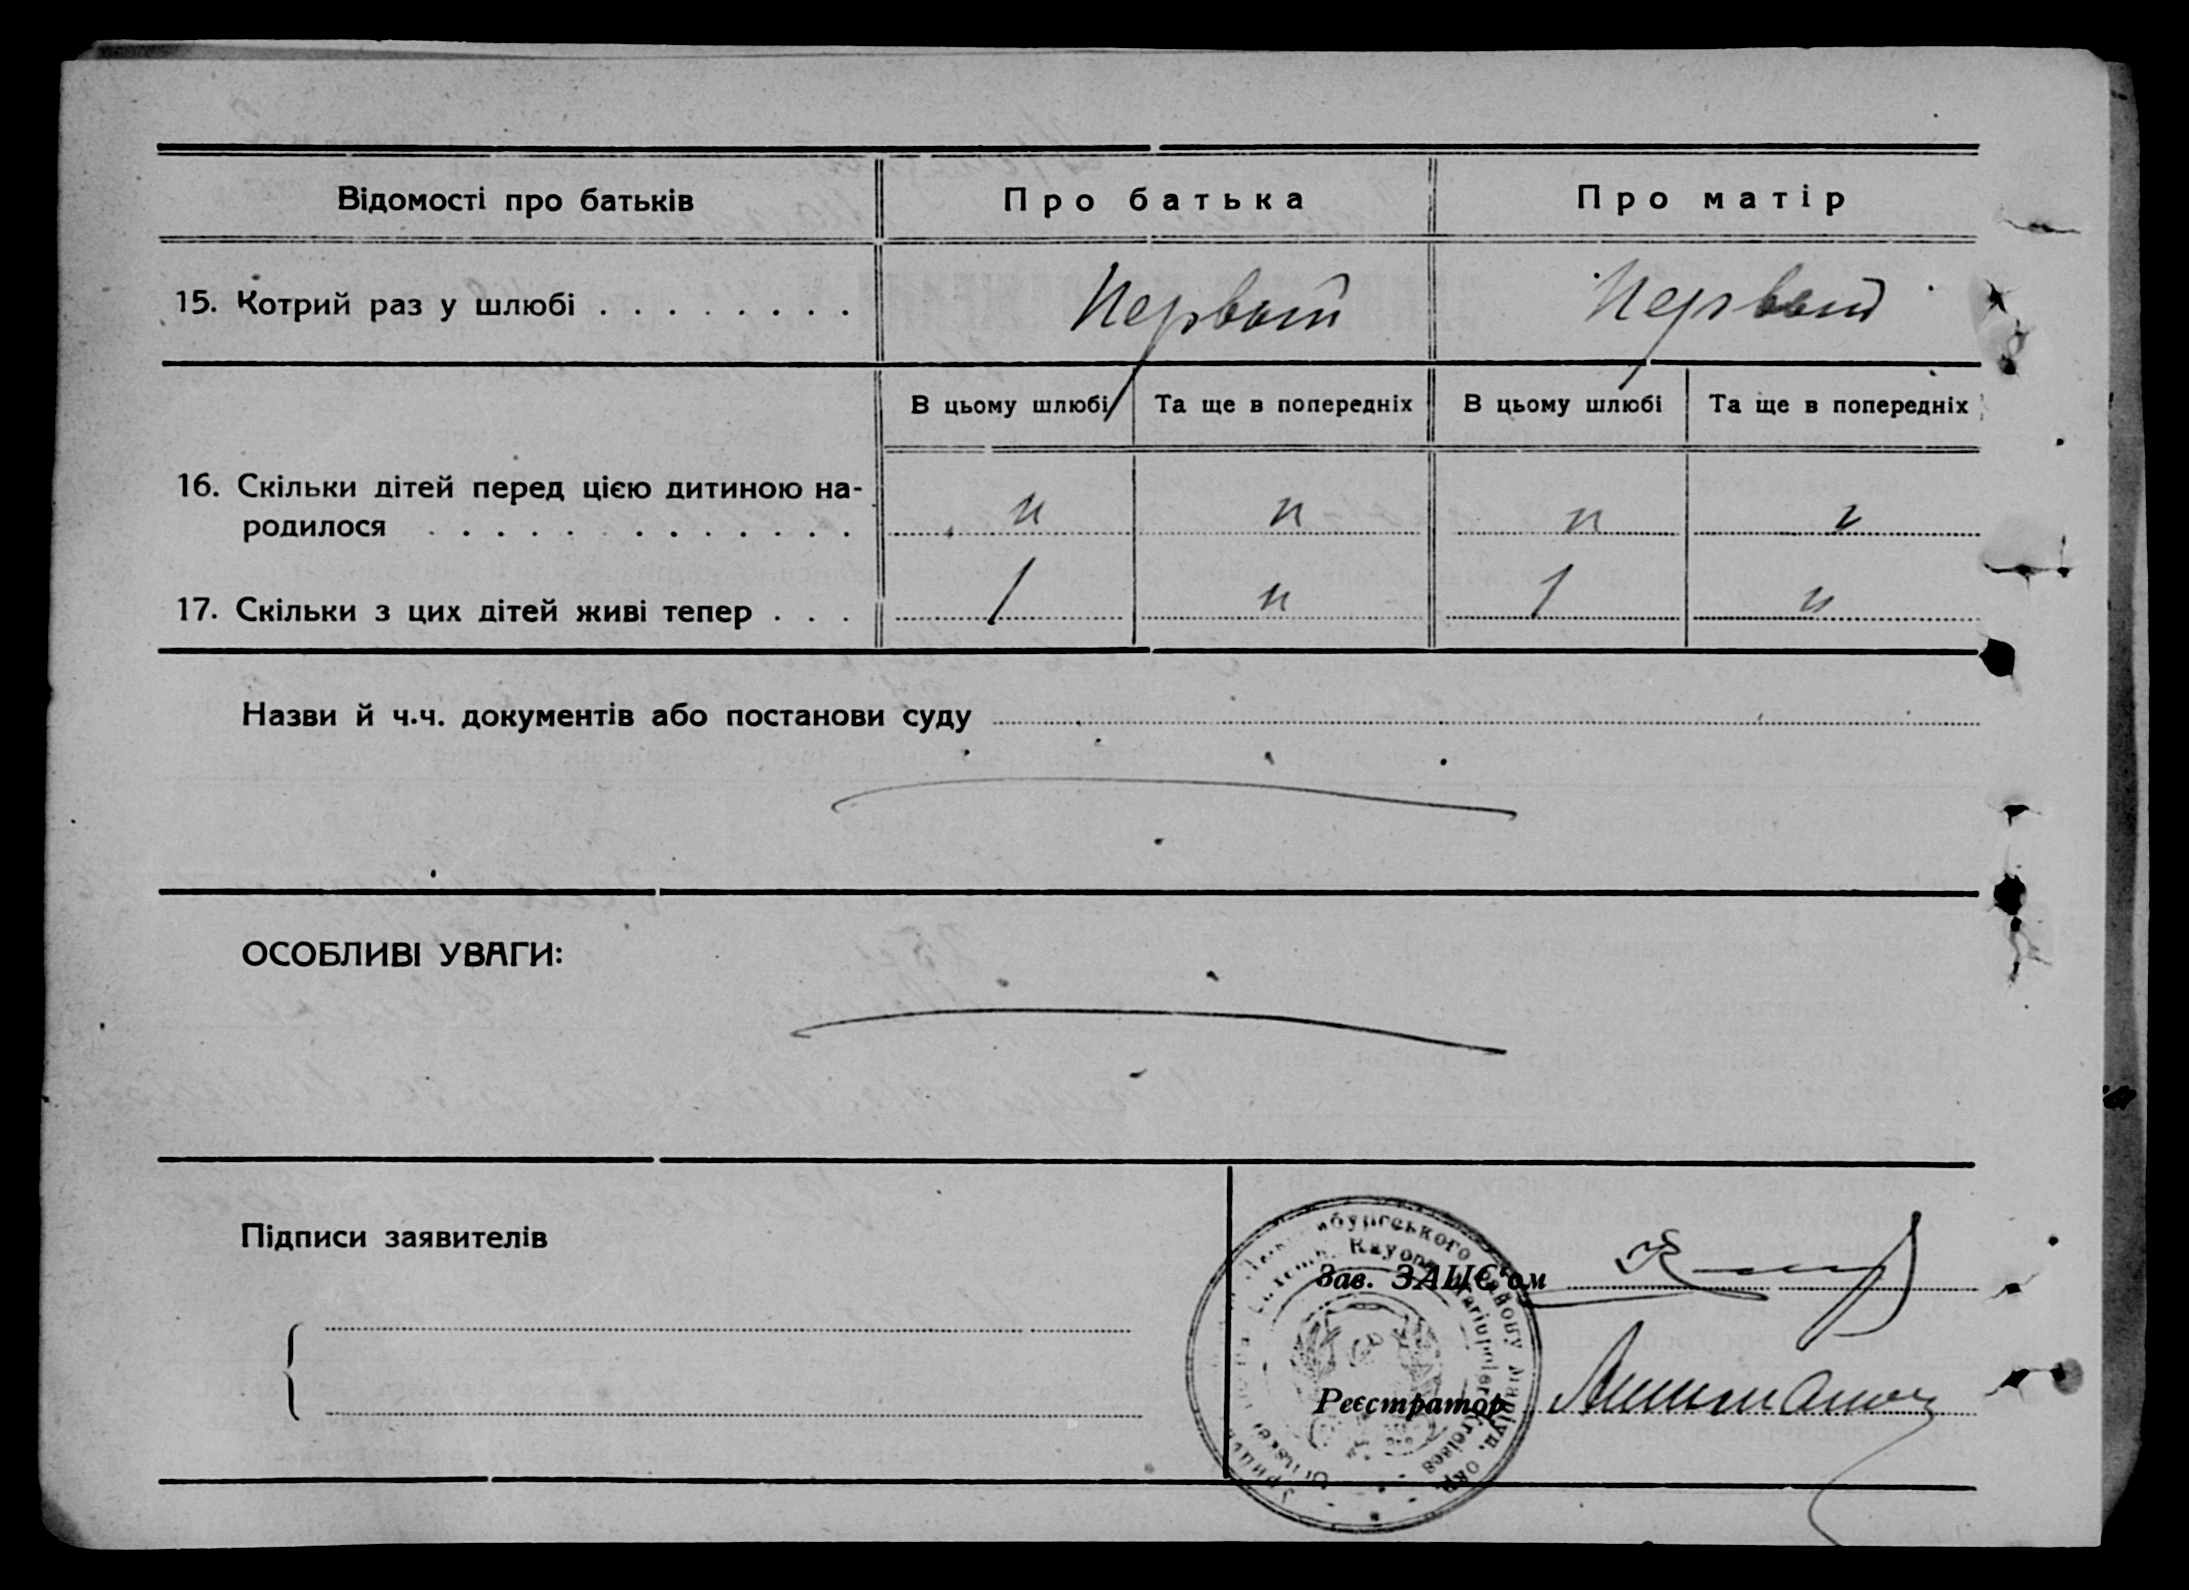 Відомості про батьків
Про батька
Про матір
15. Котрий раз у шлюбі . . . . . . . .
Первый
Первый
В цьому шлюбі
Та ще в попередніх
В цьому шлюбі
Та ще в попередніх
16. Скільки дітей перед цією дитиною на-
родилося . . . . . . . . . . . . .
17. Скільки з цих дітей живі тепер . . .
1
1
Назви й ч.ч. документів або постанови суду
ОСОБЛИВІ УВАГИ:
Підписи заявителів
Зав. ЗАЦС'ом
Реєстратор